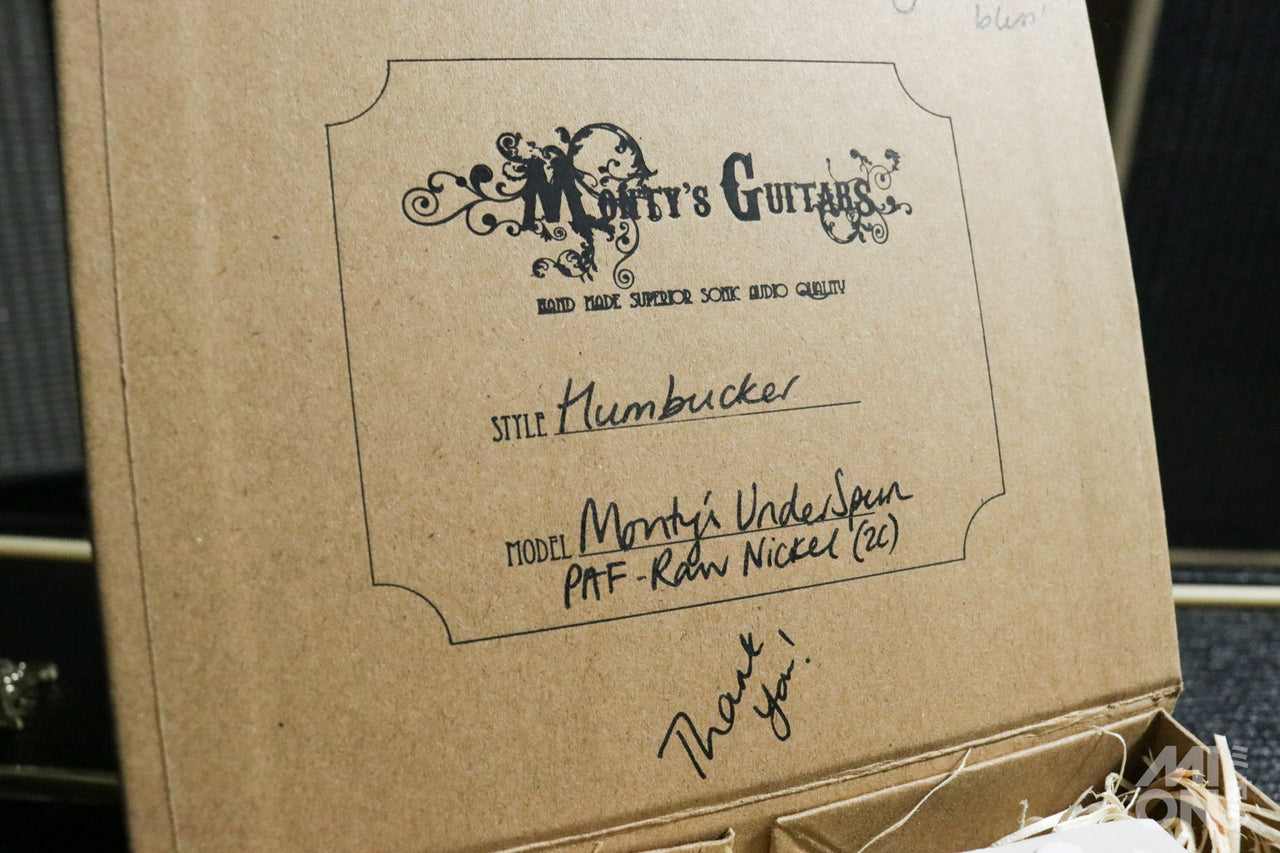 bless!
MONTY'S GUITARS
HAND MADE SUPERIOR SONIC AUDIO QUALITY
STYLE Humbucker
MODEL Monty's UnderSpun
PAF - Raw Nickel (2C)
Thank
you!